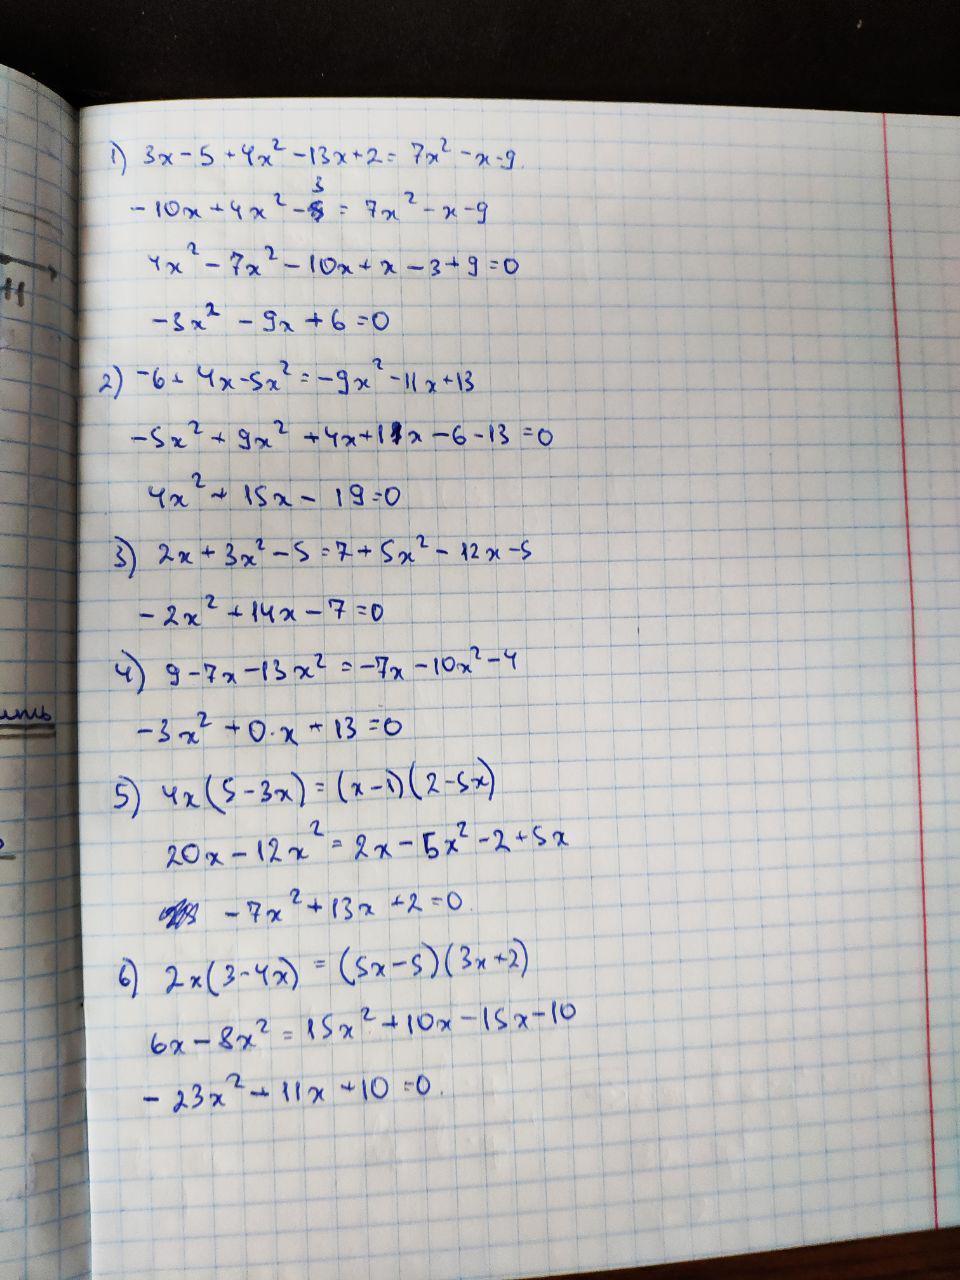 H
ить
1) 3x - 5 + 4x² - 13x + 2 = 7x² - x - 9.
-10x + 4x² - 3 = 7x² - x - 9
4x² - 7x² - 10x + x - 3 + 9 = 0
-3x² - 9x + 6 = 0
2) -6 + 4x - 5x² = -9x² - 11x + 13
-5x² + 9x² + 4x + 11x - 6 - 13 = 0
4x² + 15x - 19 = 0
3) 2x + 3x² - 5 = 7 + 5x² - 12x - 5
-2x² + 14x - 7 = 0
4) 9 - 7x - 13x² = -7x - 10x² - 4
-3x² + 0·x + 13 = 0
5) 4x(5 - 3x) = (x - 1)(2 - 5x)
20x - 12x² = 2x - 5x² - 2 + 5x
-7x² + 13x + 2 = 0.
6) 2x(3 - 4x) = (5x - 5)(3x + 2)
6x - 8x² = 15x² + 10x - 15x - 10
-23x² + 11x + 10 = 0.